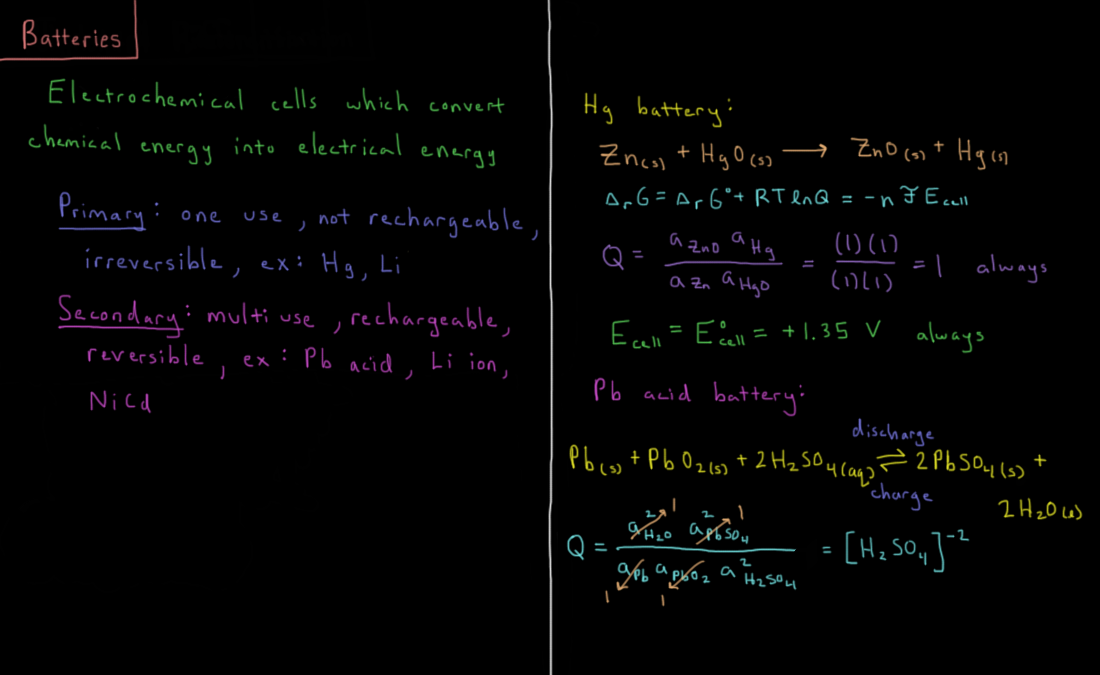 Batteries
Electrochemical cells which convert
chemical energy into electrical energy
Primary: one use, not rechargeable,
irreversible, ex: Hg, Li
Secondary: multi use, rechargeable,
reversible, ex: Pb acid, Li ion,
NiCd
Hg battery:
Zn(s) + HgO(s) ⟶ ZnO(s) + Hg(l)
ΔrG = ΔrG° + RT ln Q = -n ℱ Ecell
Q = (a ZnO a Hg) / (a Zn a HgO) = (1)(1) / (1)(1) = 1 always
Ecell = E°cell = +1.35 V always
Pb acid battery:
discharge
Pb(s) + PbO2(s) + 2H2SO4(aq) ⇌ 2PbSO4(s) +
charge
2H2O(l)
Q = (a²H2O → 1 a²PbSO4 → 1) / (aPb → 1 aPbO2 → 1 a²H2SO4) = [H2SO4]^-2